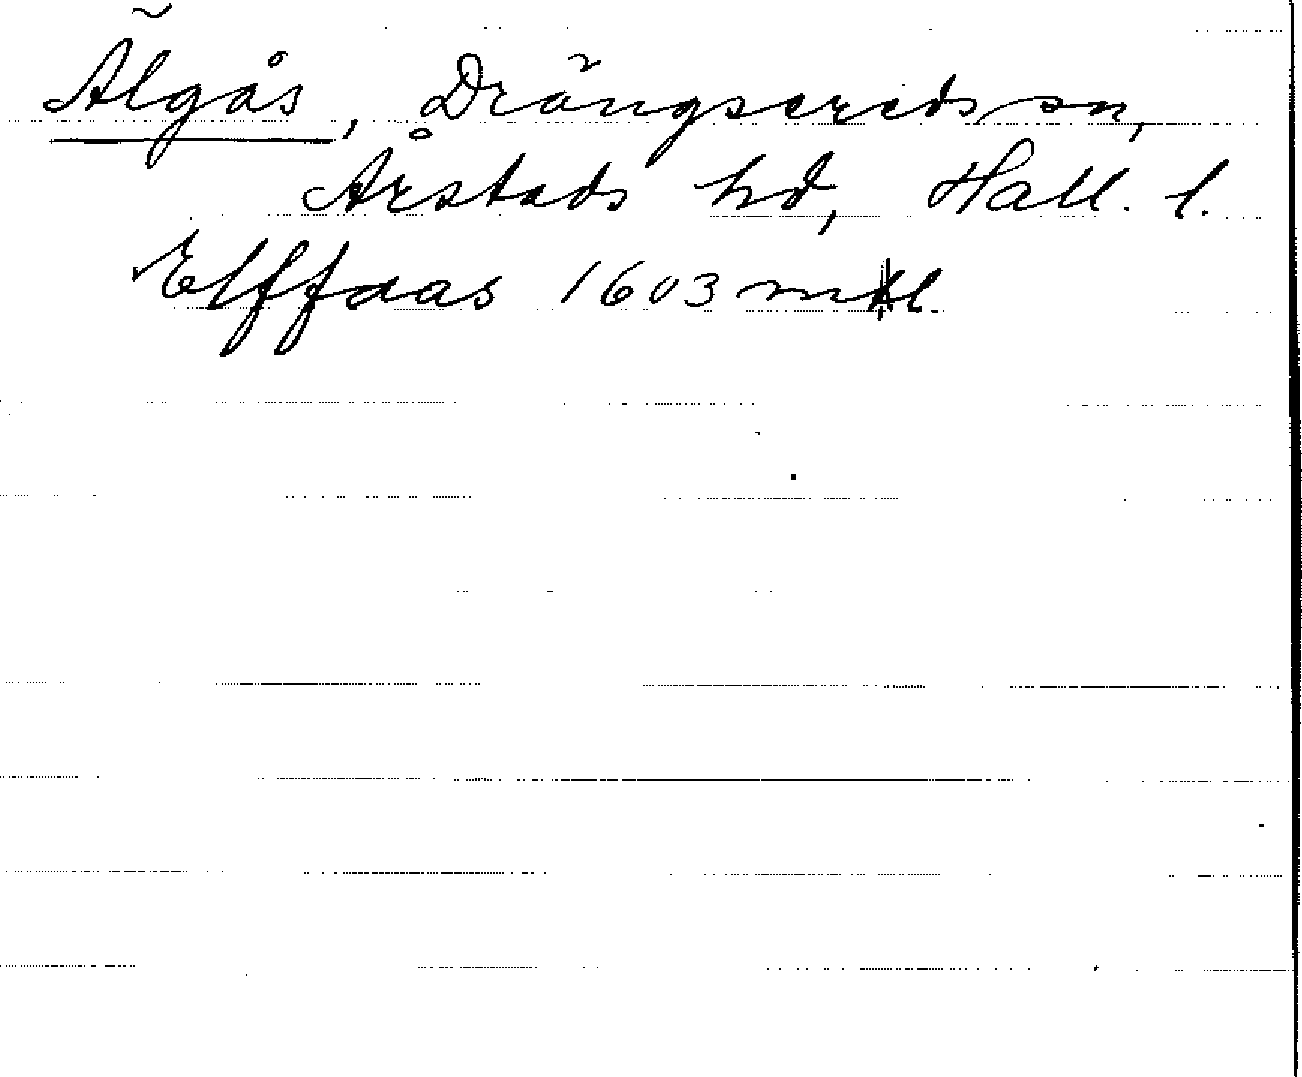 Älgås, Drängsereds sn,
Årstads hd, Hall. l.
Elffaas 1603 mtl.